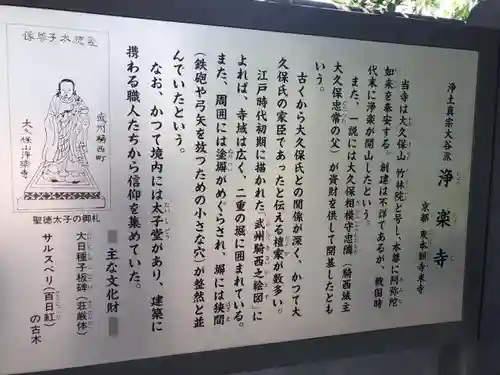 浄土真宗大谷派
浄楽寺
じょうらくじ
京都 東本願寺末寺
当寺は大久保山 竹林院と号し、本尊に阿弥陀
如来を奉安する。創建は不詳であるが、戦国時
代末に浄楽が開山したという。
また、一説には大久保相模守忠隣(騎西城主
大久保忠常の父)が資財を供して開基したとも
いう。
古くから大久保氏との関係が深く、かつて大
久保氏の家臣であったと伝える檀家が数多い。
江戸時代初期に描かれた「武州騎西之絵図」に
よれば、寺域は広く、二重の堀に囲まれている。
また、周囲には塗塀がめぐらされ、塀には狭間
(鉄砲や弓矢を放つための小さな穴)が整然と並
んでいたという。
なお、かつて境内には太子堂があり、建築に
携わる職人たちから信仰を集めていた。
主な文化財
大日種子板碑(荘厳体)
サルスベリ(百日紅)の古木
聖徳太子の御札
武州騎西町
大久保山浄楽寺